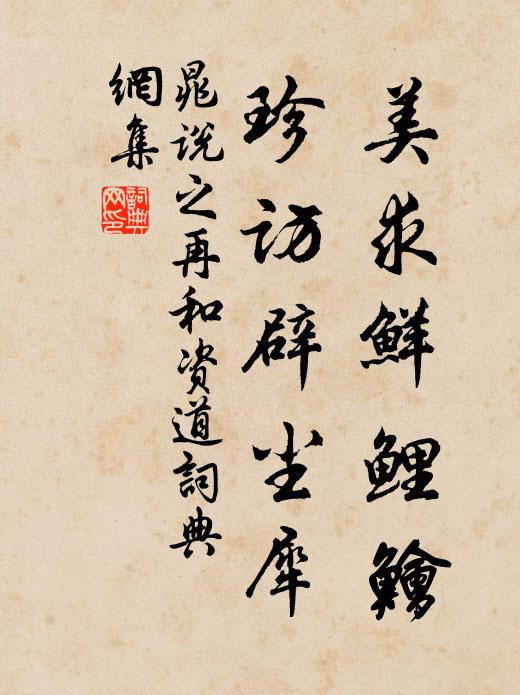 美求鮮鲤鱠
珍访辟尘犀
晁说之再和资道词典
網集
詞典網印